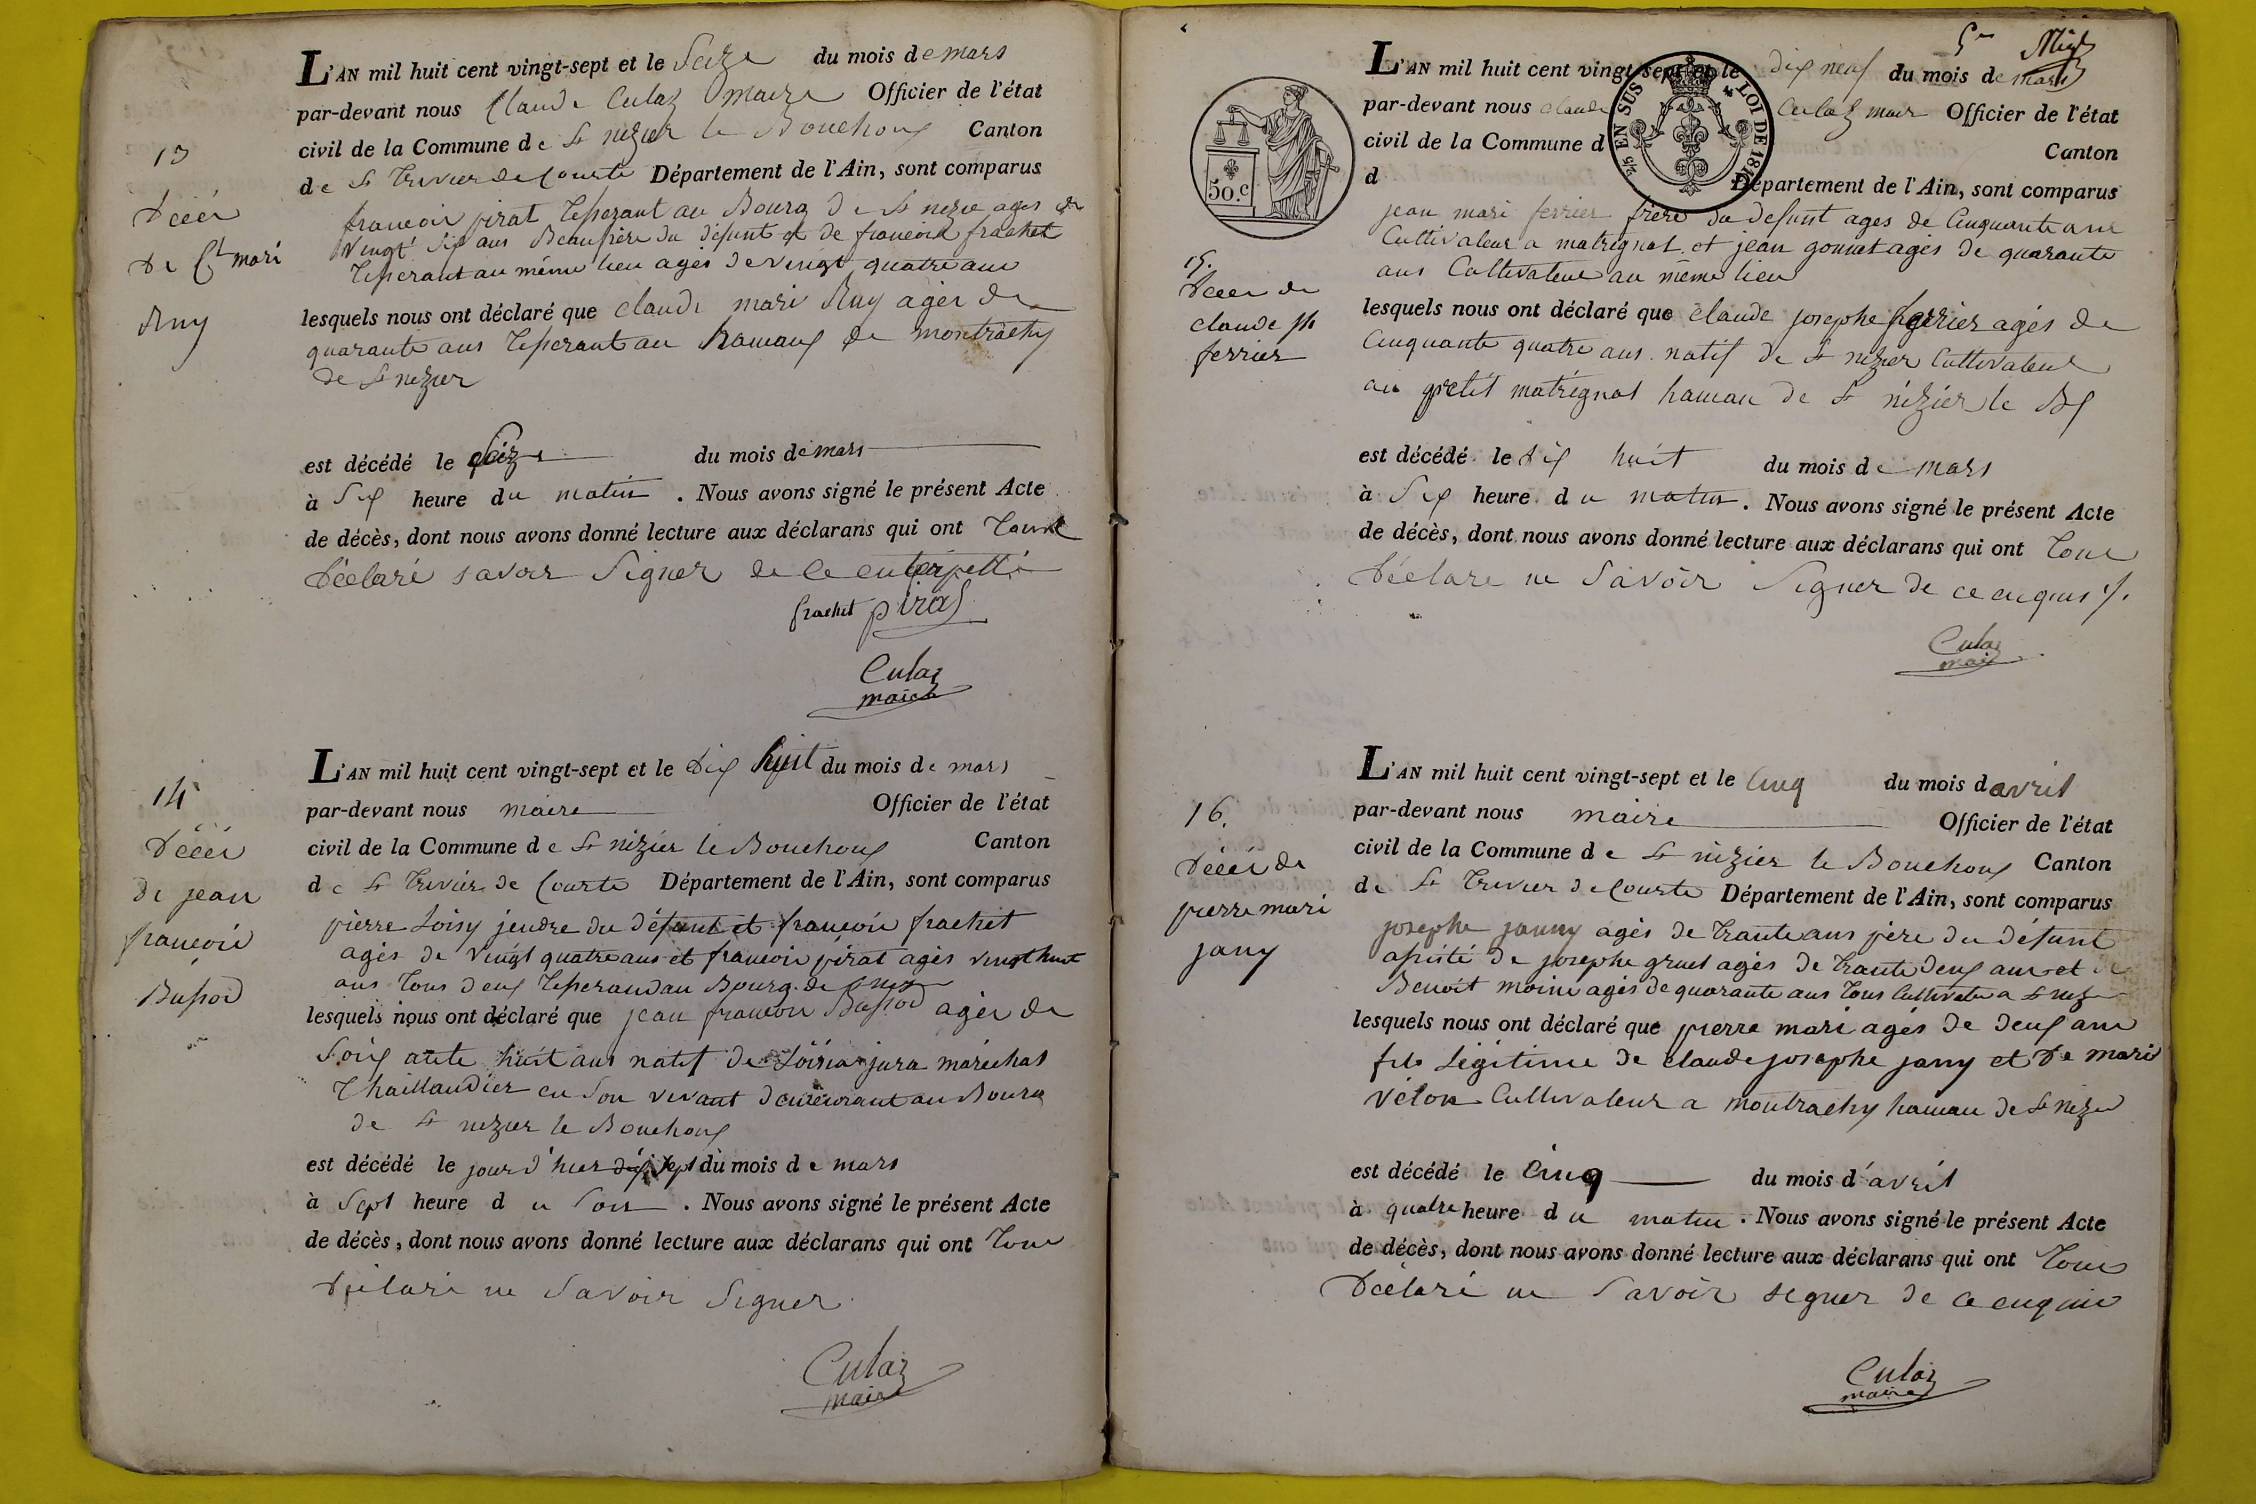 13
Décès
De Ct mari
Ruy
L'AN mil huit cent vingt-sept et le Seize du mois de mars
par-devant nous Claude Culaz maire Officier de l'état
civil de la Commune de St nizier le Bouchoux Canton
de St Trivier de Courte Département de l'Ain, sont comparus
francois pirat Tisserant au Bourg De St nizie ages de
Vingt Six ans Beaufrère du défunt et de francois frachet
Tisserant au même lieu agés de vingt quatre ans
lesquels nous ont déclaré que claude mari Ruy agés de
quarante ans Tisserant au hamaux de montrachy
de St nizier
est décédé le Seize du mois de mars
à Six heure du matin . Nous avons signé le présent Acte
de décès, dont nous avons donné lecture aux déclarans qui ont Tous
Déclaré savoir Signer de ce
frachet pirat
Culaz
maire
14
Décés
De jean
francois
Bussod
L'AN mil huit cent vingt-sept et le Dix huit du mois de mars
par-devant nous maire Officier de l'état
civil de la Commune de St nizier le Bouchoux Canton
de St Trivier de Courte Département de l'Ain, sont comparus
pierre Loisy jendre du défunt et francois frachet
agés de Vingt quatre ans et francois pirat agés vingt huit
ans Tous deux Tisserand au Bourg de St nizier
lesquels nous ont déclaré que jean francois Bussod agés de
Soix ante huit ans natif de Loisia jura maréchal
Thaillandier en Son vivant demeurant au Bourg
de St nizier le Bouchoux
est décédé le jour d'hier dix sept du mois de mars
à Sept heure du Soir . Nous avons signé le présent Acte
de décès, dont nous avons donné lecture aux déclarans qui ont Tous
Déclaré ne Savoir Signer
Culaz
maire
5me
50.c
2/5 EN SUS LOI DE 1816
15.
Décés de
claude jh
ferrier
L'AN mil huit cent vingt-sept et le dix neuf du mois de mars
par-devant nous claude Culaz maire Officier de l'état
civil de la Commune d Canton
d Département de l'Ain, sont comparus
jean mari ferrier frère du defunt ages de Cinquante ans
Cultivateur a matrignat et jean gonnet agés de quarante
ans Cultivateur au même lieu
lesquels nous ont déclaré que claude josephe ferrier agés de
Cinquante quatre ans natif de St nizier Cultivateur
au petit matrégnat hamau de St nizier le Bx
est décédé le dix huit du mois de mars
à Six heure du matin . Nous avons signé le présent Acte
de décès, dont nous avons donné lecture aux déclarans qui ont Tous
Déclare ne Savoir Signer de ce enquis
Culaz
maire
16.
Décés de
pierre mari
jany
L'AN mil huit cent vingt-sept et le Cinq du mois d avril
par-devant nous maire Officier de l'état
civil de la Commune de St nizier le Bouchoux Canton
de St Trivier de Courte Département de l'Ain, sont comparus
josephe janny agés de Trante ans père du défunt
assisté de josephe gruet agés de Trante deux ans et de
Benoît moine agés de quarante ans Tous Cultivateur a St nizier
lesquels nous ont déclaré que pierre mari agés de deux ans
fils Légitime de claude josephe jany et De mari
véton Cultivateur a montrachy hamau de St nizier
est décédé le Cinq du mois d'avril
à quatre heure du matin . Nous avons signé le présent Acte
de décès, dont nous avons donné lecture aux déclarans qui ont Tous
Déclaré ne Savoir signer de ce enquis
Culaz
maire